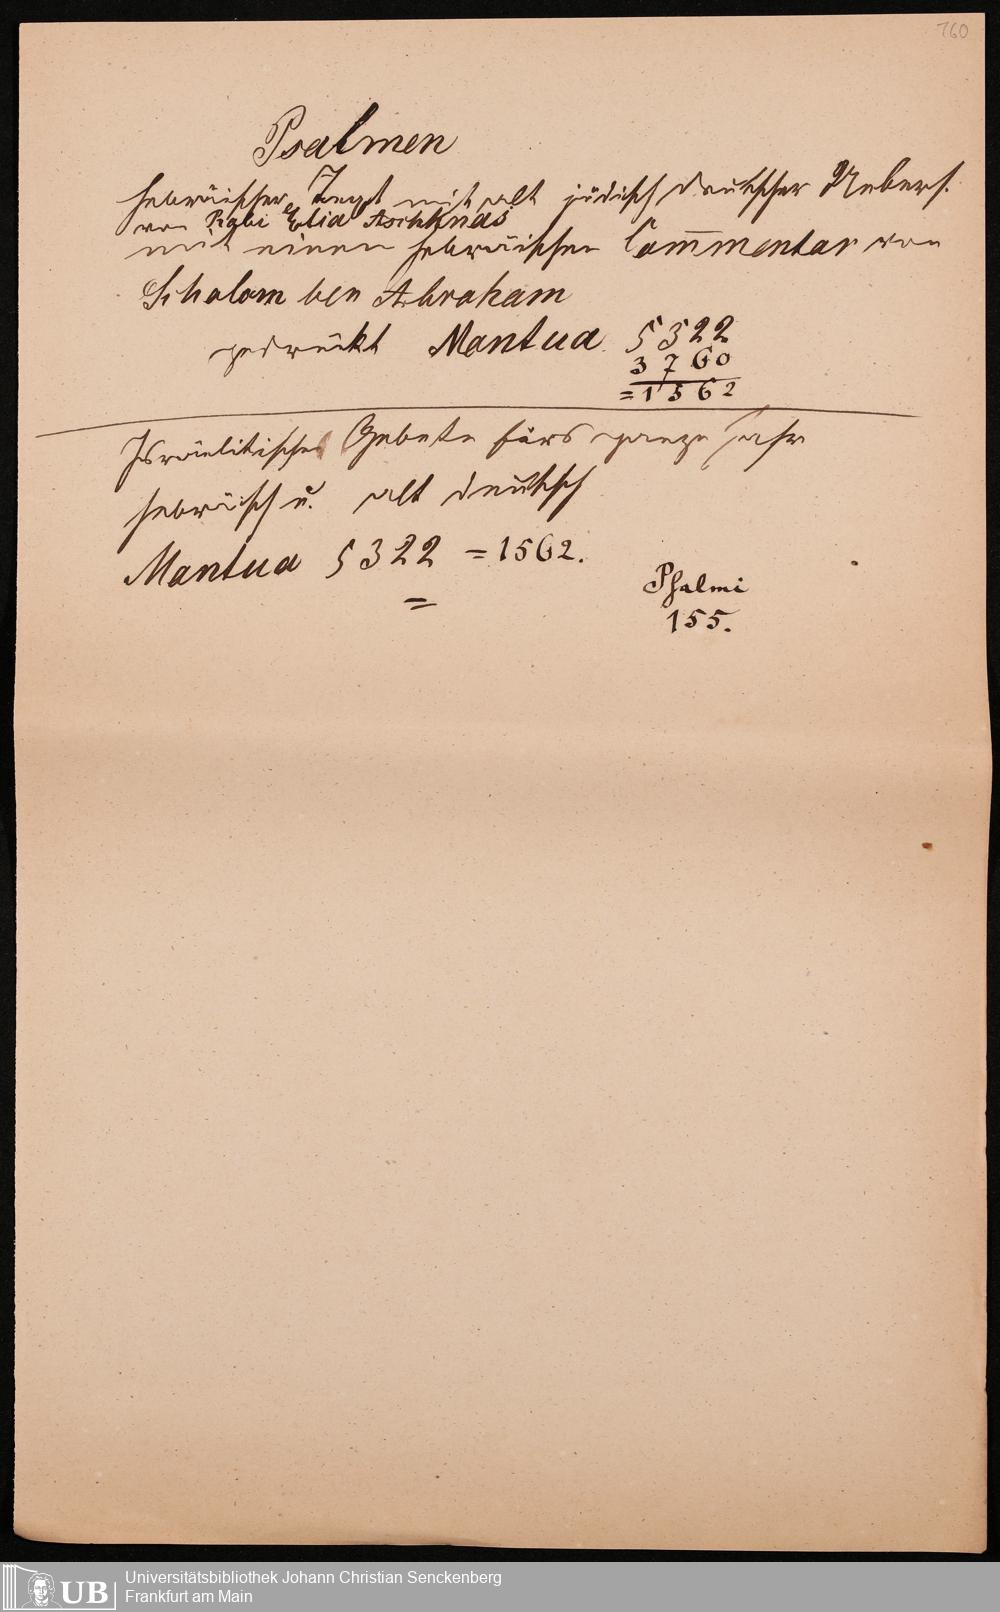 760
Psalmen
hebräischer Text mit alt jüdisch deutscher Uebers.
von Rabi Elia Aschknas
mit einem hebräischen Com̅mentar von
Schalom ben Abraham
gedrückt Mantua 5322
3760
=1562
Israelitisches Gebete fürs ganze Jahr
hebräisch u. alt deutsch
Mantua 5322 =1562.
Psalmi
155.
UB
Universitätsbibliothek Johann Christian Senckenberg
Frankfurt am Main